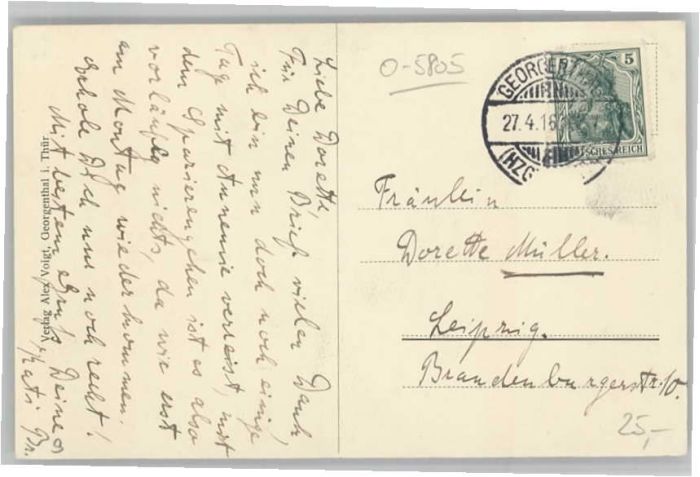 Liebe Dorette,
Für Deinen Brief vielen Dank
ich bin nun doch noch einige
Tag mit Annemie verreist, mit
dem Spazierengehen ist es also
vorläufig nichts, da wir erst
am Montag wiederkommen.
Erhole Dich nur noch recht!
Mit bestem Gruß, Deine
Kati Br.
Verlag Alex Voigt, Georgenthal i. Thür
O-5805
GEORGENTHAL
27.4.16
(HZG
5
DEUTSCHES REICH
Fräulein
Dorette Müller.
Leipzig.
Brandenburgerstr. 10.
25,-